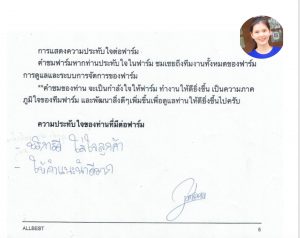 การแสดงความประทับใจต่อฟาร์ม
คำชมฟาร์มหากท่านประทับใจในฟาร์ม ชมเชยถึงทีมงานทั้งหมดของฟาร์ม
การดูแลและระบบการจัดการของฟาร์ม
**คำชมของท่าน จะเป็นกำลังใจให้ฟาร์ม ทำงานให้ดียิ่งขึ้น เป็นความภาค
ภูมิใจของทีมฟาร์ม และพัฒนาสิ่งดีๆเพิ่มขึ้นเพื่อดูแลท่านให้ดียิ่งขึ้นไปครับ
ความประทับใจของท่านที่มีต่อฟาร์ม
- บริการดี ใส่ใจลูกค้า
- ให้คำแนะนำดีมาก
ALLBEST
6